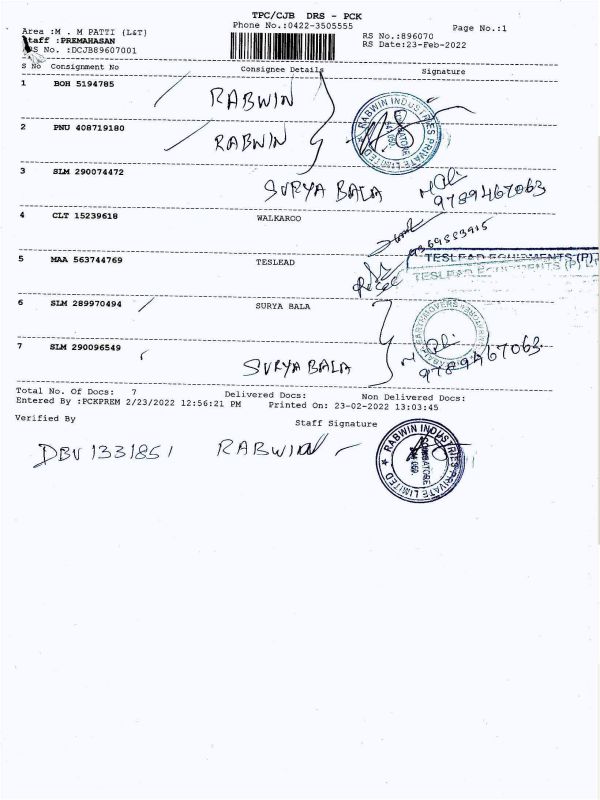 TPC/CJB DRS - PCK
Phone No.:0422-3505555
Page No.:1
Area :M . M PATTI (L&T)
Staff :PREMAHASAN
DRS No. :DCJB89607001
RS No.:896070
RS Date:23-Feb-2022
S No Consignment No Consignee Details Signature
1 BOH 5194785 RABWIN
RABWIN INDUSTRIES PRIVATE LIMITED
2 PNU 408719180 RABWIN
3 SLM 290074472 SURYA BALA
9789467063
4 CLT 15239618 WALKAROO
9369883915
5 MAA 563744769 TESLEAD
TESLEAD EQUIPMENTS (P)
TESLEAD EQUIPMENTS (P) L
6 SLM 289970494 SURYA BALA
7 SLM 290096549 SURYA BALA
9789467063
Total No. Of Docs: 7 Delivered Docs: Non Delivered Docs:
Entered By :PCKPREM 2/23/2022 12:56:21 PM Printed On: 23-02-2022 13:03:45
Verified By Staff Signature
DBV 1331851 RABWIN
RABWIN INDUSTRIES PRIVATE LIMITED
COIMBATORE
641 050.